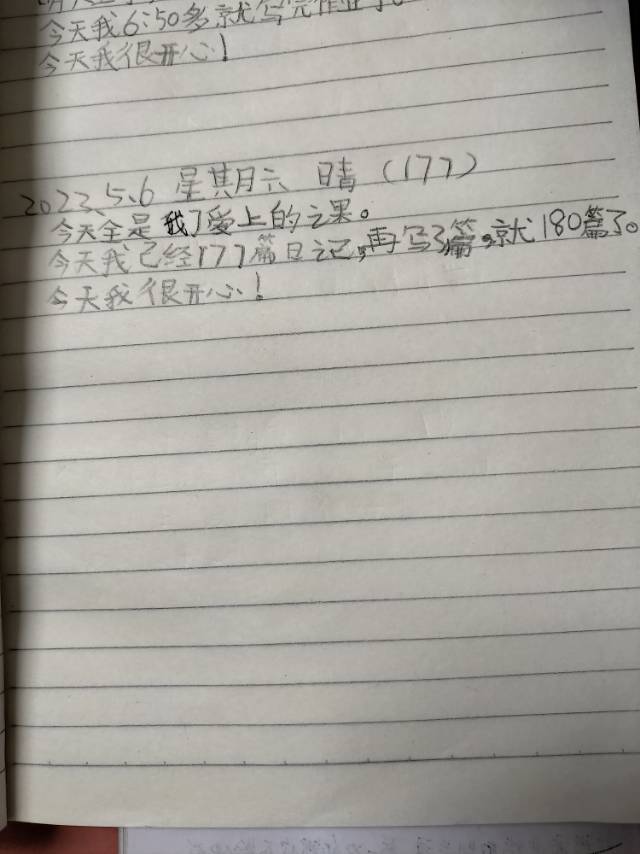 今天我6:50多就写完作业了。
今天我很开心！
2023.5.6 星期六 晴（177）
今天全是我了爱上的之果。
今天我已经177篇日记，再写3篇，就180篇了。
今天我很开心！